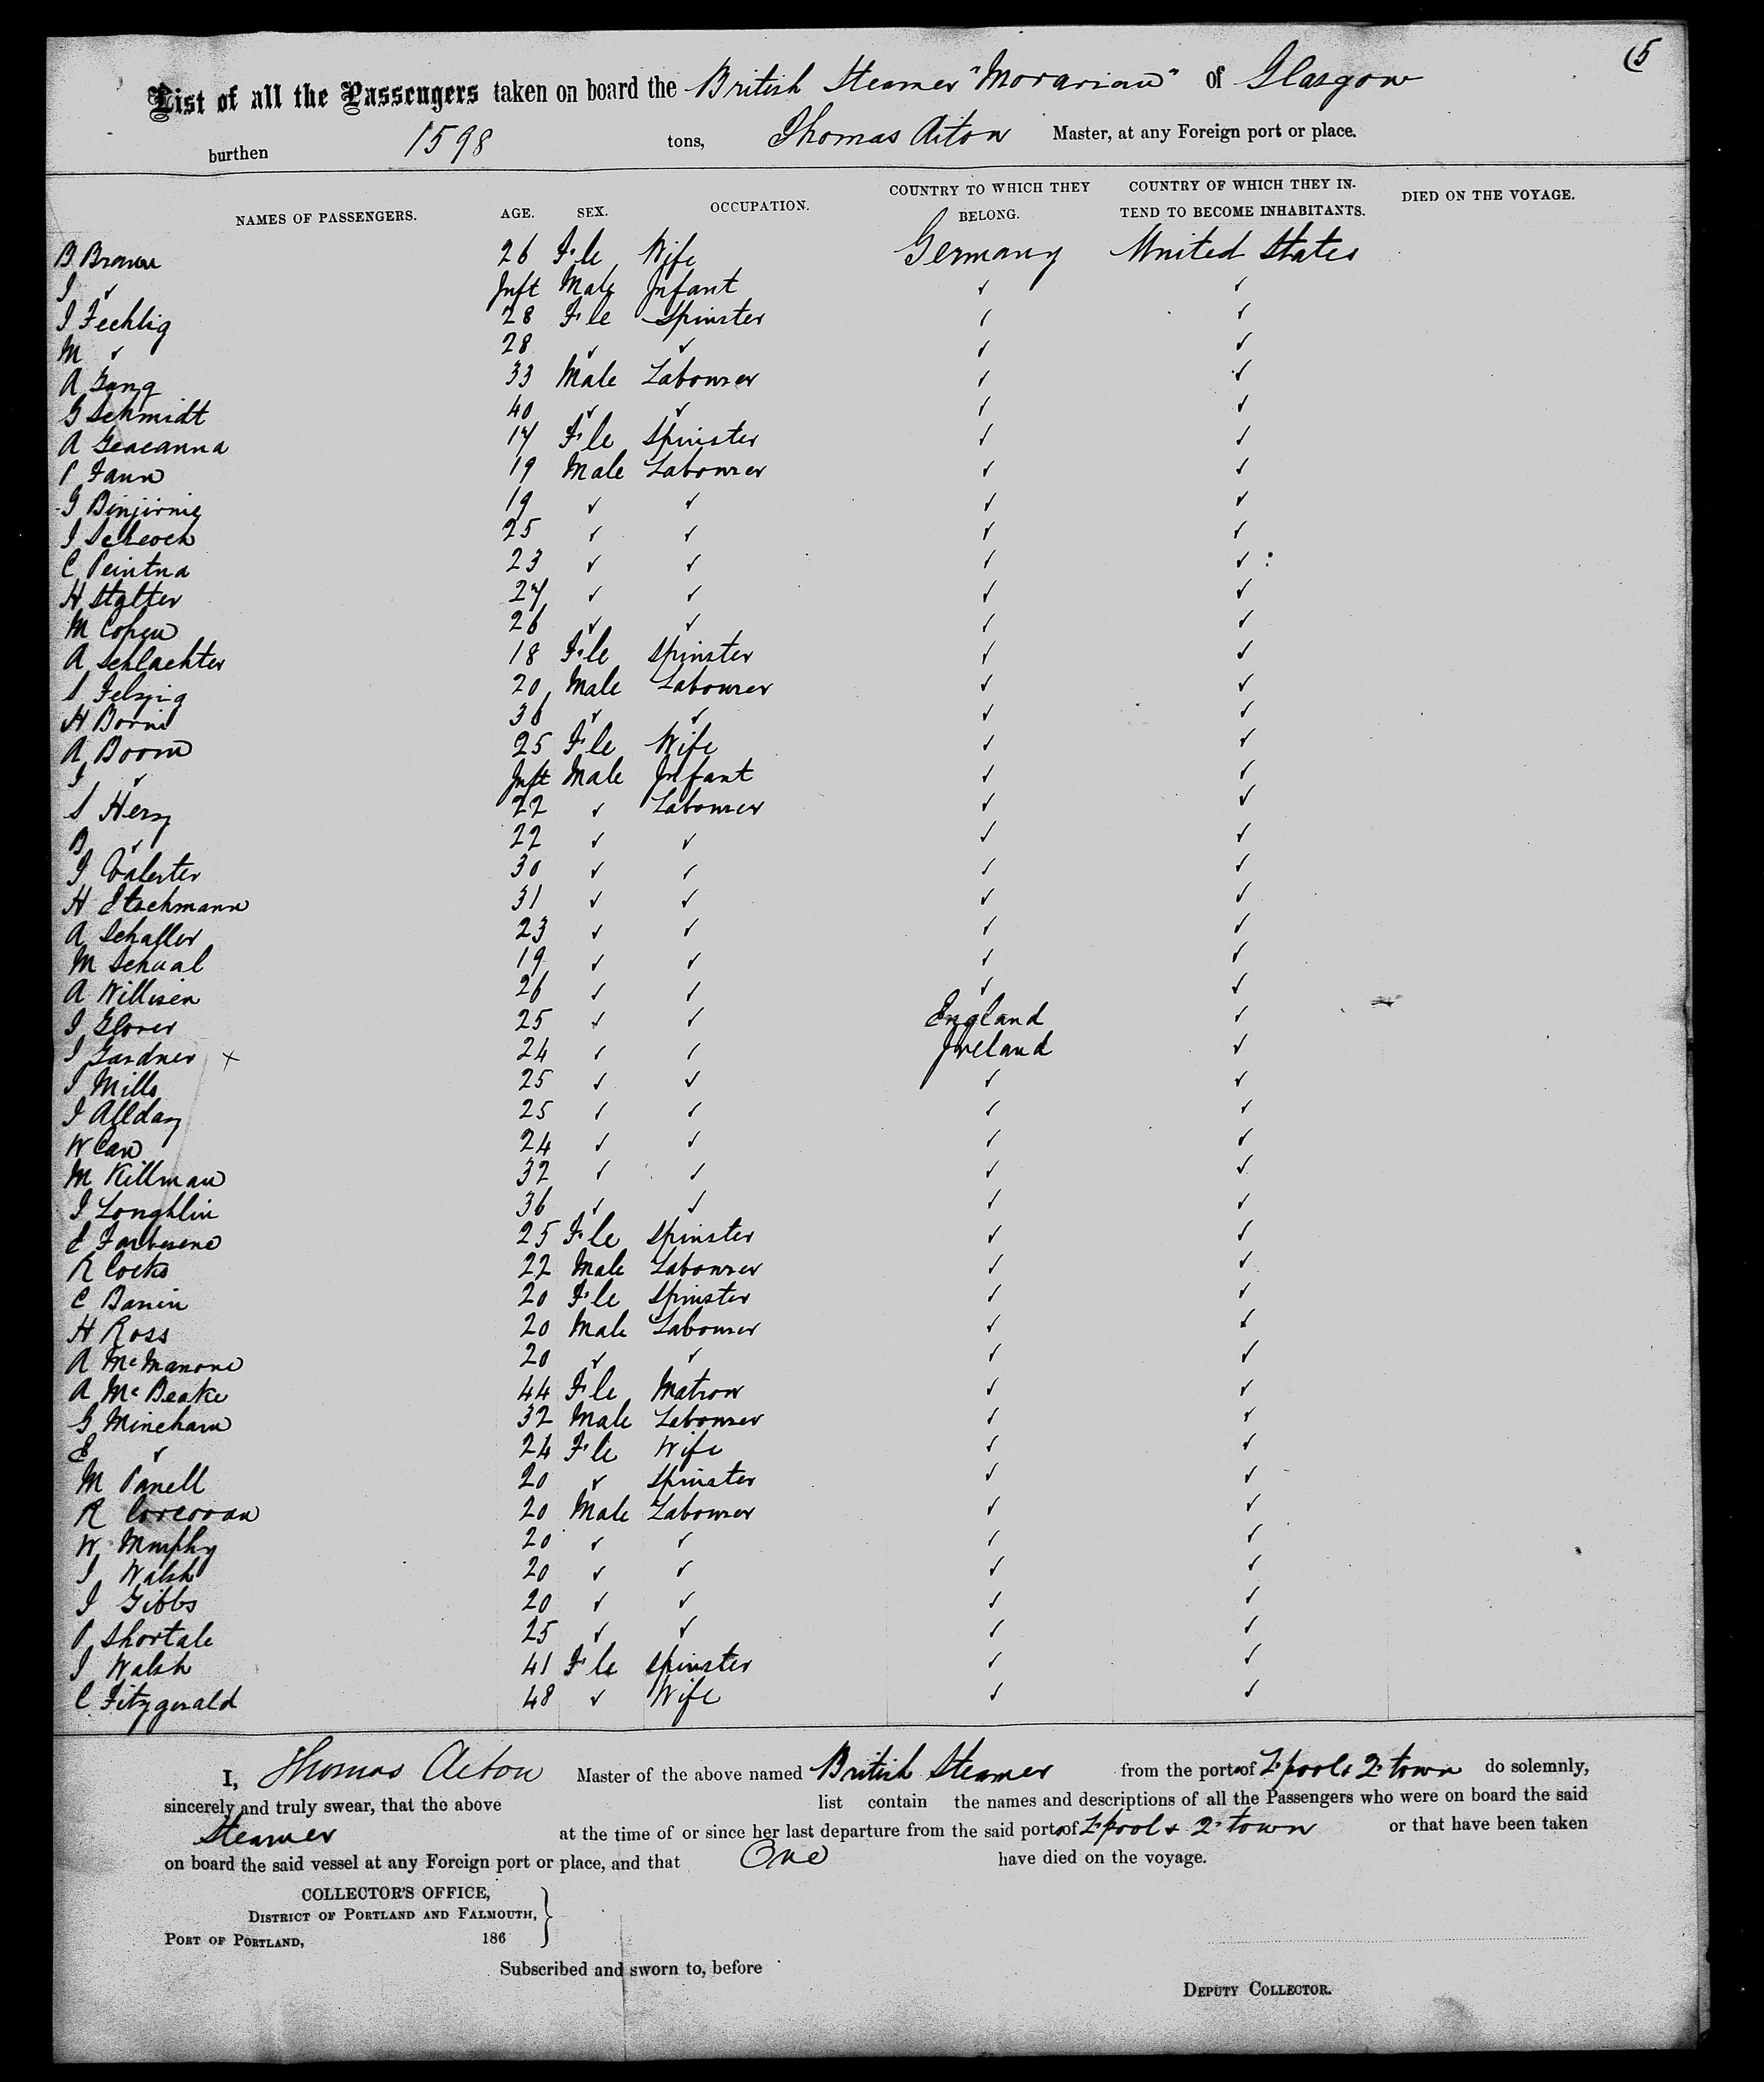 (5
List of all the Passengers taken on board the British Steamer "Moravian" of Glasgow
burthen 1598 tons, Thomas Aiton Master, at any Foreign port or place.
NAMES OF PASSENGERS. AGE. SEX. OCCUPATION. COUNTRY TO WHICH THEY BELONG. COUNTRY OF WHICH THEY INTEND TO BECOME INHABITANTS. DIED ON THE VOYAGE.
B Brown 26 F.le Wife Germany United States
I ✓ Inft Male Infant ✓ ✓
I Fechlig 28 F.le Spinster ✓ ✓
M ✓ 28 ✓ ✓ ✓ ✓
A Gang 33 Male Labourer ✓ ✓
G Schmidt 40 ✓ ✓ ✓ ✓
A 17 F.le Spinster ✓ ✓
P Faun 19 Male Labourer ✓ ✓
19 ✓ ✓ ✓ ✓
I 25 ✓ ✓ ✓ ✓
C Peintna 23 ✓ ✓ ✓ ✓
H Statter 27 ✓ ✓ ✓ ✓
M Cohen 26 ✓ ✓ ✓ ✓
A Schlachter 18 F.le Spinster ✓ ✓
S Felsing 20 Male Labourer ✓ ✓
H Borne 36 ✓ ✓ ✓ ✓
A Boorn 25 F.le Wife ✓ ✓
I ✓ Inft Male Infant ✓ ✓
S Herz 22 ✓ Labourer ✓ ✓
B ✓ 22 ✓ ✓ ✓ ✓
I 30 ✓ ✓ ✓ ✓
H Etschmann 31 ✓ ✓ ✓ ✓
A Schaller 23 ✓ ✓ ✓ ✓
M Schual 19 ✓ ✓ ✓ ✓
A Willisen 26 ✓ ✓ ✓ ✓
I Glover 25 ✓ ✓ England ✓
I Gardner × 24 ✓ ✓ Ireland ✓
I Mills 25 ✓ ✓ ✓ ✓
I Allday 25 ✓ ✓ ✓ ✓
W Can 24 ✓ ✓ ✓ ✓
M Killman 32 ✓ ✓ ✓ ✓
I Loughlin 36 ✓ ✓ ✓ ✓
E 25 F.le Spinster ✓ ✓
R Cocks 22 Male Labourer ✓ ✓
C Banin 20 F.le Spinster ✓ ✓
H Ross 20 Male Labourer ✓ ✓
A McManone 20 ✓ ✓ ✓ ✓
A McBeake 44 F.le Matron ✓ ✓
G Mineham 32 Male Labourer ✓ ✓
E ✓ 24 F.le Wife ✓ ✓
M Panell 20 ✓ Spinster ✓ ✓
R Corcoran 20 Male Labourer ✓ ✓
W Murphy 20 ✓ ✓ ✓ ✓
I Walsh 20 ✓ ✓ ✓ ✓
I Gibbs 20 ✓ ✓ ✓ ✓
P Shortale 25 ✓ ✓ ✓ ✓
I Walsh 41 F.le Spinster ✓ ✓
C Fitzgerald 48 ✓ Wife ✓ ✓
I, Thomas Aiton Master of the above named British Steamer from the port of L'pool & L'town do solemnly,
sincerely and truly swear, that the above list contain the names and descriptions of all the Passengers who were on board the said
Steamer at the time of or since her last departure from the said port of L'pool & L'town or that have been taken
on board the said vessel at any Foreign port or place, and that One have died on the voyage.
COLLECTOR'S OFFICE,
DISTRICT OF PORTLAND AND FALMOUTH,
PORT OF PORTLAND, 186
Subscribed and sworn to, before
DEPUTY COLLECTOR.